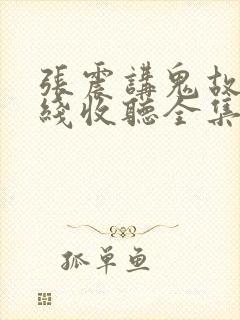 張震講鬼故
綫收聽全集
孤單鱼